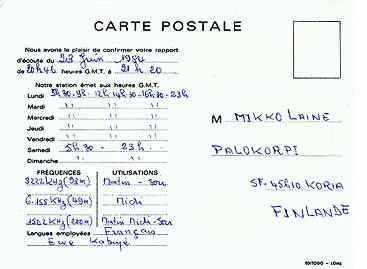 CARTE POSTALE
Nous avons le plaisir de confirmer votre rapport
d'écoute du 23 Juin 1984
de 20h46 heures G.M.T. à 21h20
Notre station émet aux heures G.M.T.
Lundi 5h30-9h. 12h 14h30-16h30-23h
Mardi " " "
Mercredi " " "
Jeudi " " "
Vendredi " " "
Samedi 5h30 - 23h
Dimanche " "
FRÉQUENCES UTILISATIONS
3222 KHz (93m) Matin - Soir
6.155 KHz (49m) Midi
1502 KHz (200m) Matin Midi-Soir
Langues employées Français
Ewe Kabyè
M MIKKO LAINE
PALOKORPI
SF. 45410 KORIA
FINLANDE
EDITOGO - LOME